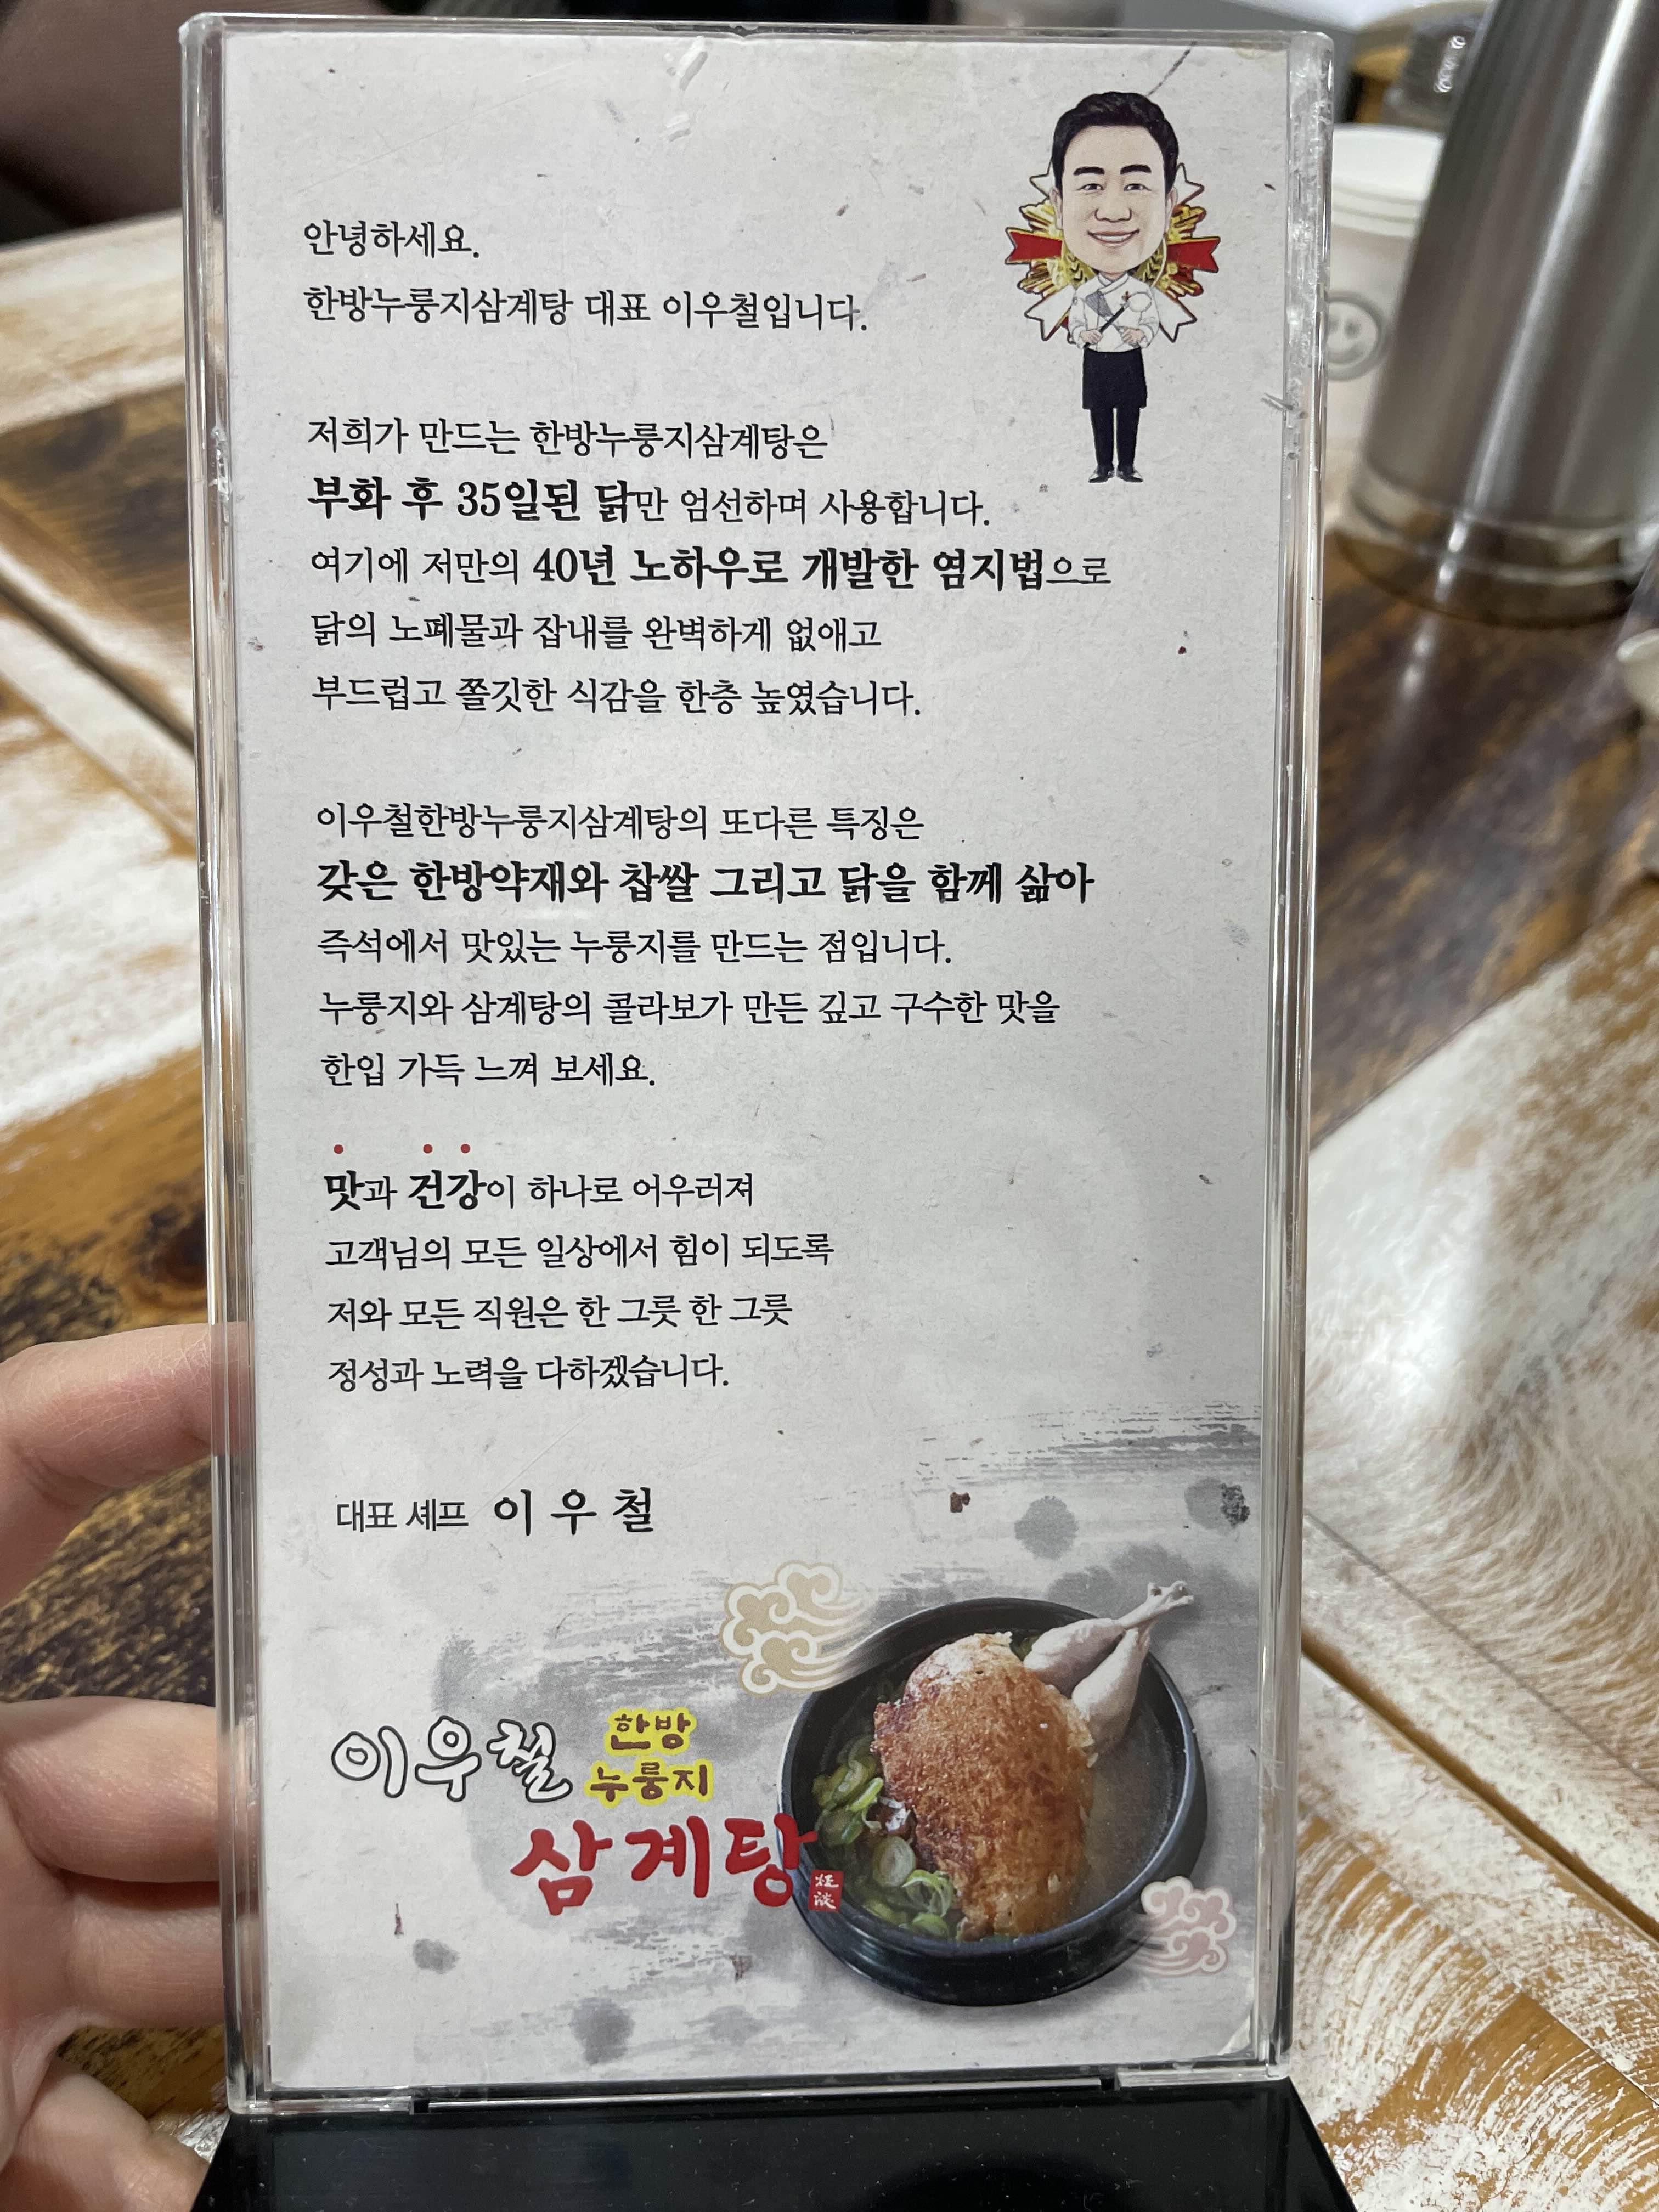 안녕하세요.
한방누룽지삼계탕 대표 이우철입니다.
저희가 만드는 한방누룽지삼계탕은
부화 후 35일된 닭만 엄선하며 사용합니다.
여기에 저만의 40년 노하우로 개발한 염지법으로
닭의 노폐물과 잡내를 완벽하게 없애고
부드럽고 쫄깃한 식감을 한층 높였습니다.
이우철한방누룽지삼계탕의 또다른 특징은
갖은 한방약재와 찹쌀 그리고 닭을 함께 삶아
즉석에서 맛있는 누룽지를 만드는 점입니다.
누룽지와 삼계탕의 콜라보가 만든 깊고 구수한 맛을
한입 가득 느껴 보세요.
맛과 건강이 하나로 어우러져
고객님의 모든 일상에서 힘이 되도록
저와 모든 직원은 한 그릇 한 그릇
정성과 노력을 다하겠습니다.
대표 셰프 이우철
이우철 한방
누룽지
삼계탕